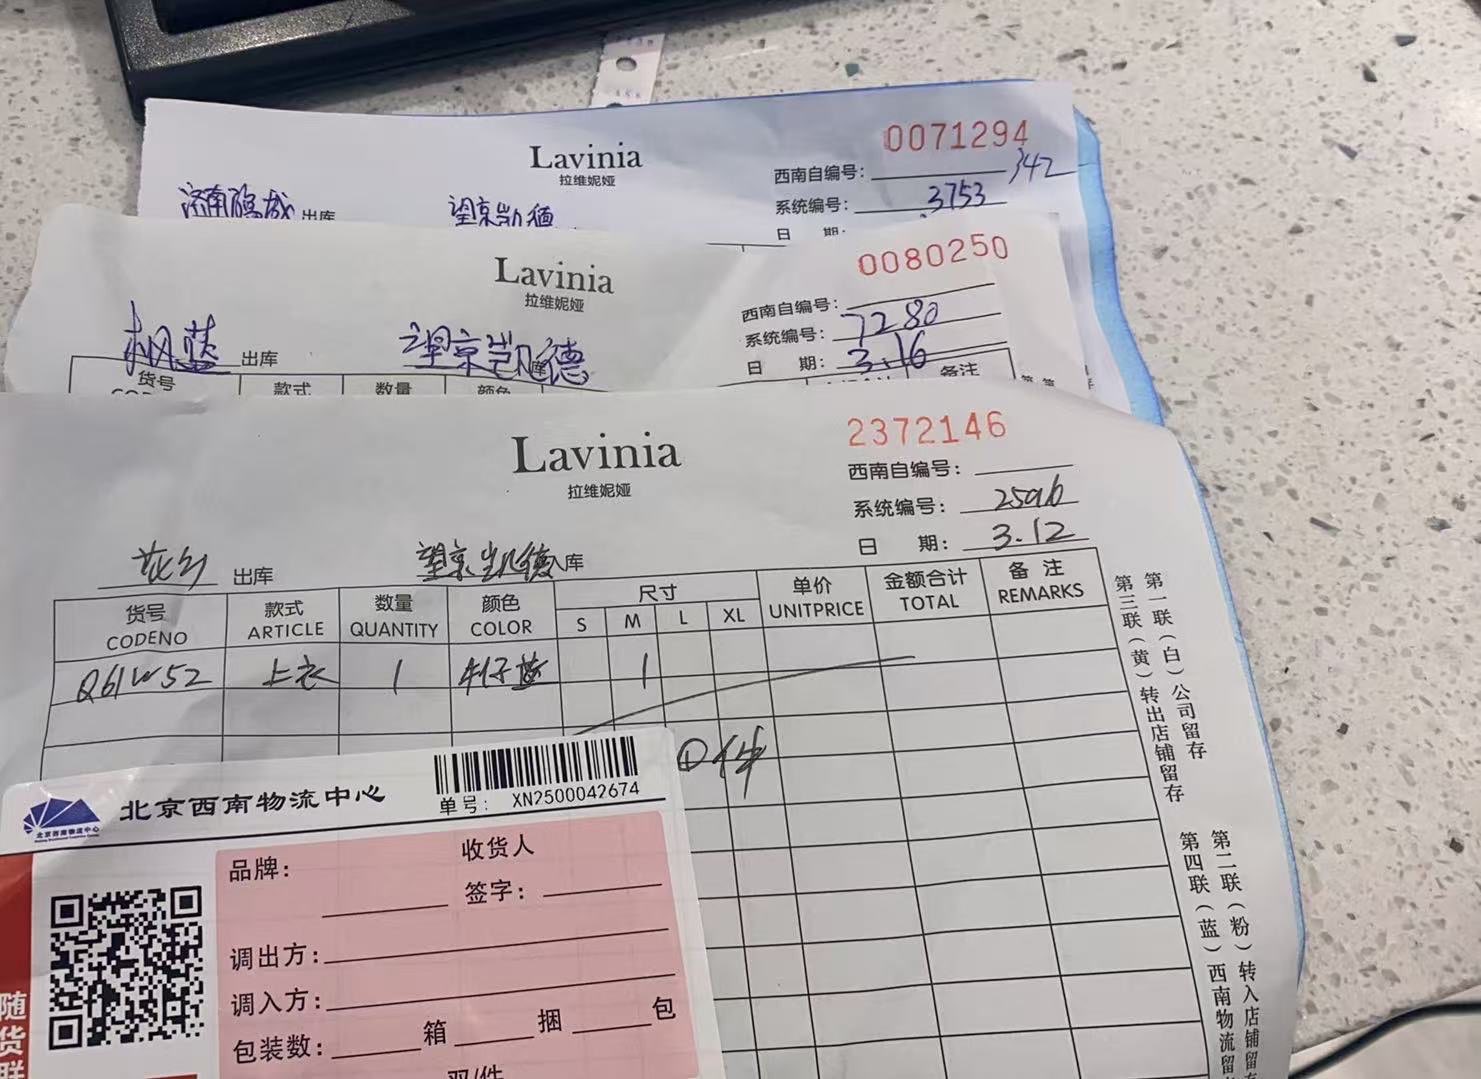 0071294
Lavinia
拉维妮娅
西南自编号: 342
系统编号: 3753
济南 出库 望京凯德
日 期:
0080250
Lavinia
拉维妮娅
西南自编号:
系统编号: 7280
日 期: 3.16
枫蓝 出库 望京凯德
货号 款式 数量 颜色 备注
2372146
Lavinia
拉维妮娅
西南自编号:
系统编号: 2596
日 期: 3.12
花乡 出库 望京凯德 库
货号 款式 数量 颜色 尺寸 单价 金额合计 备注
CODENO ARTICLE QUANTITY COLOR S M L XL UNITPRICE TOTAL REMARKS
Q61W52 上衣 1 牛仔蓝 1
①件
第一联(白)公司留存
第三联(黄)转出店铺留存
第二联(粉)转入店铺留
第四联(蓝)西南物流留
北京西南物流中心
单号: XN2500042674
北京西南物流中心
品牌: 收货人
签字:
调出方:
调入方:
包装数: 箱 捆 包
双/件
随货群